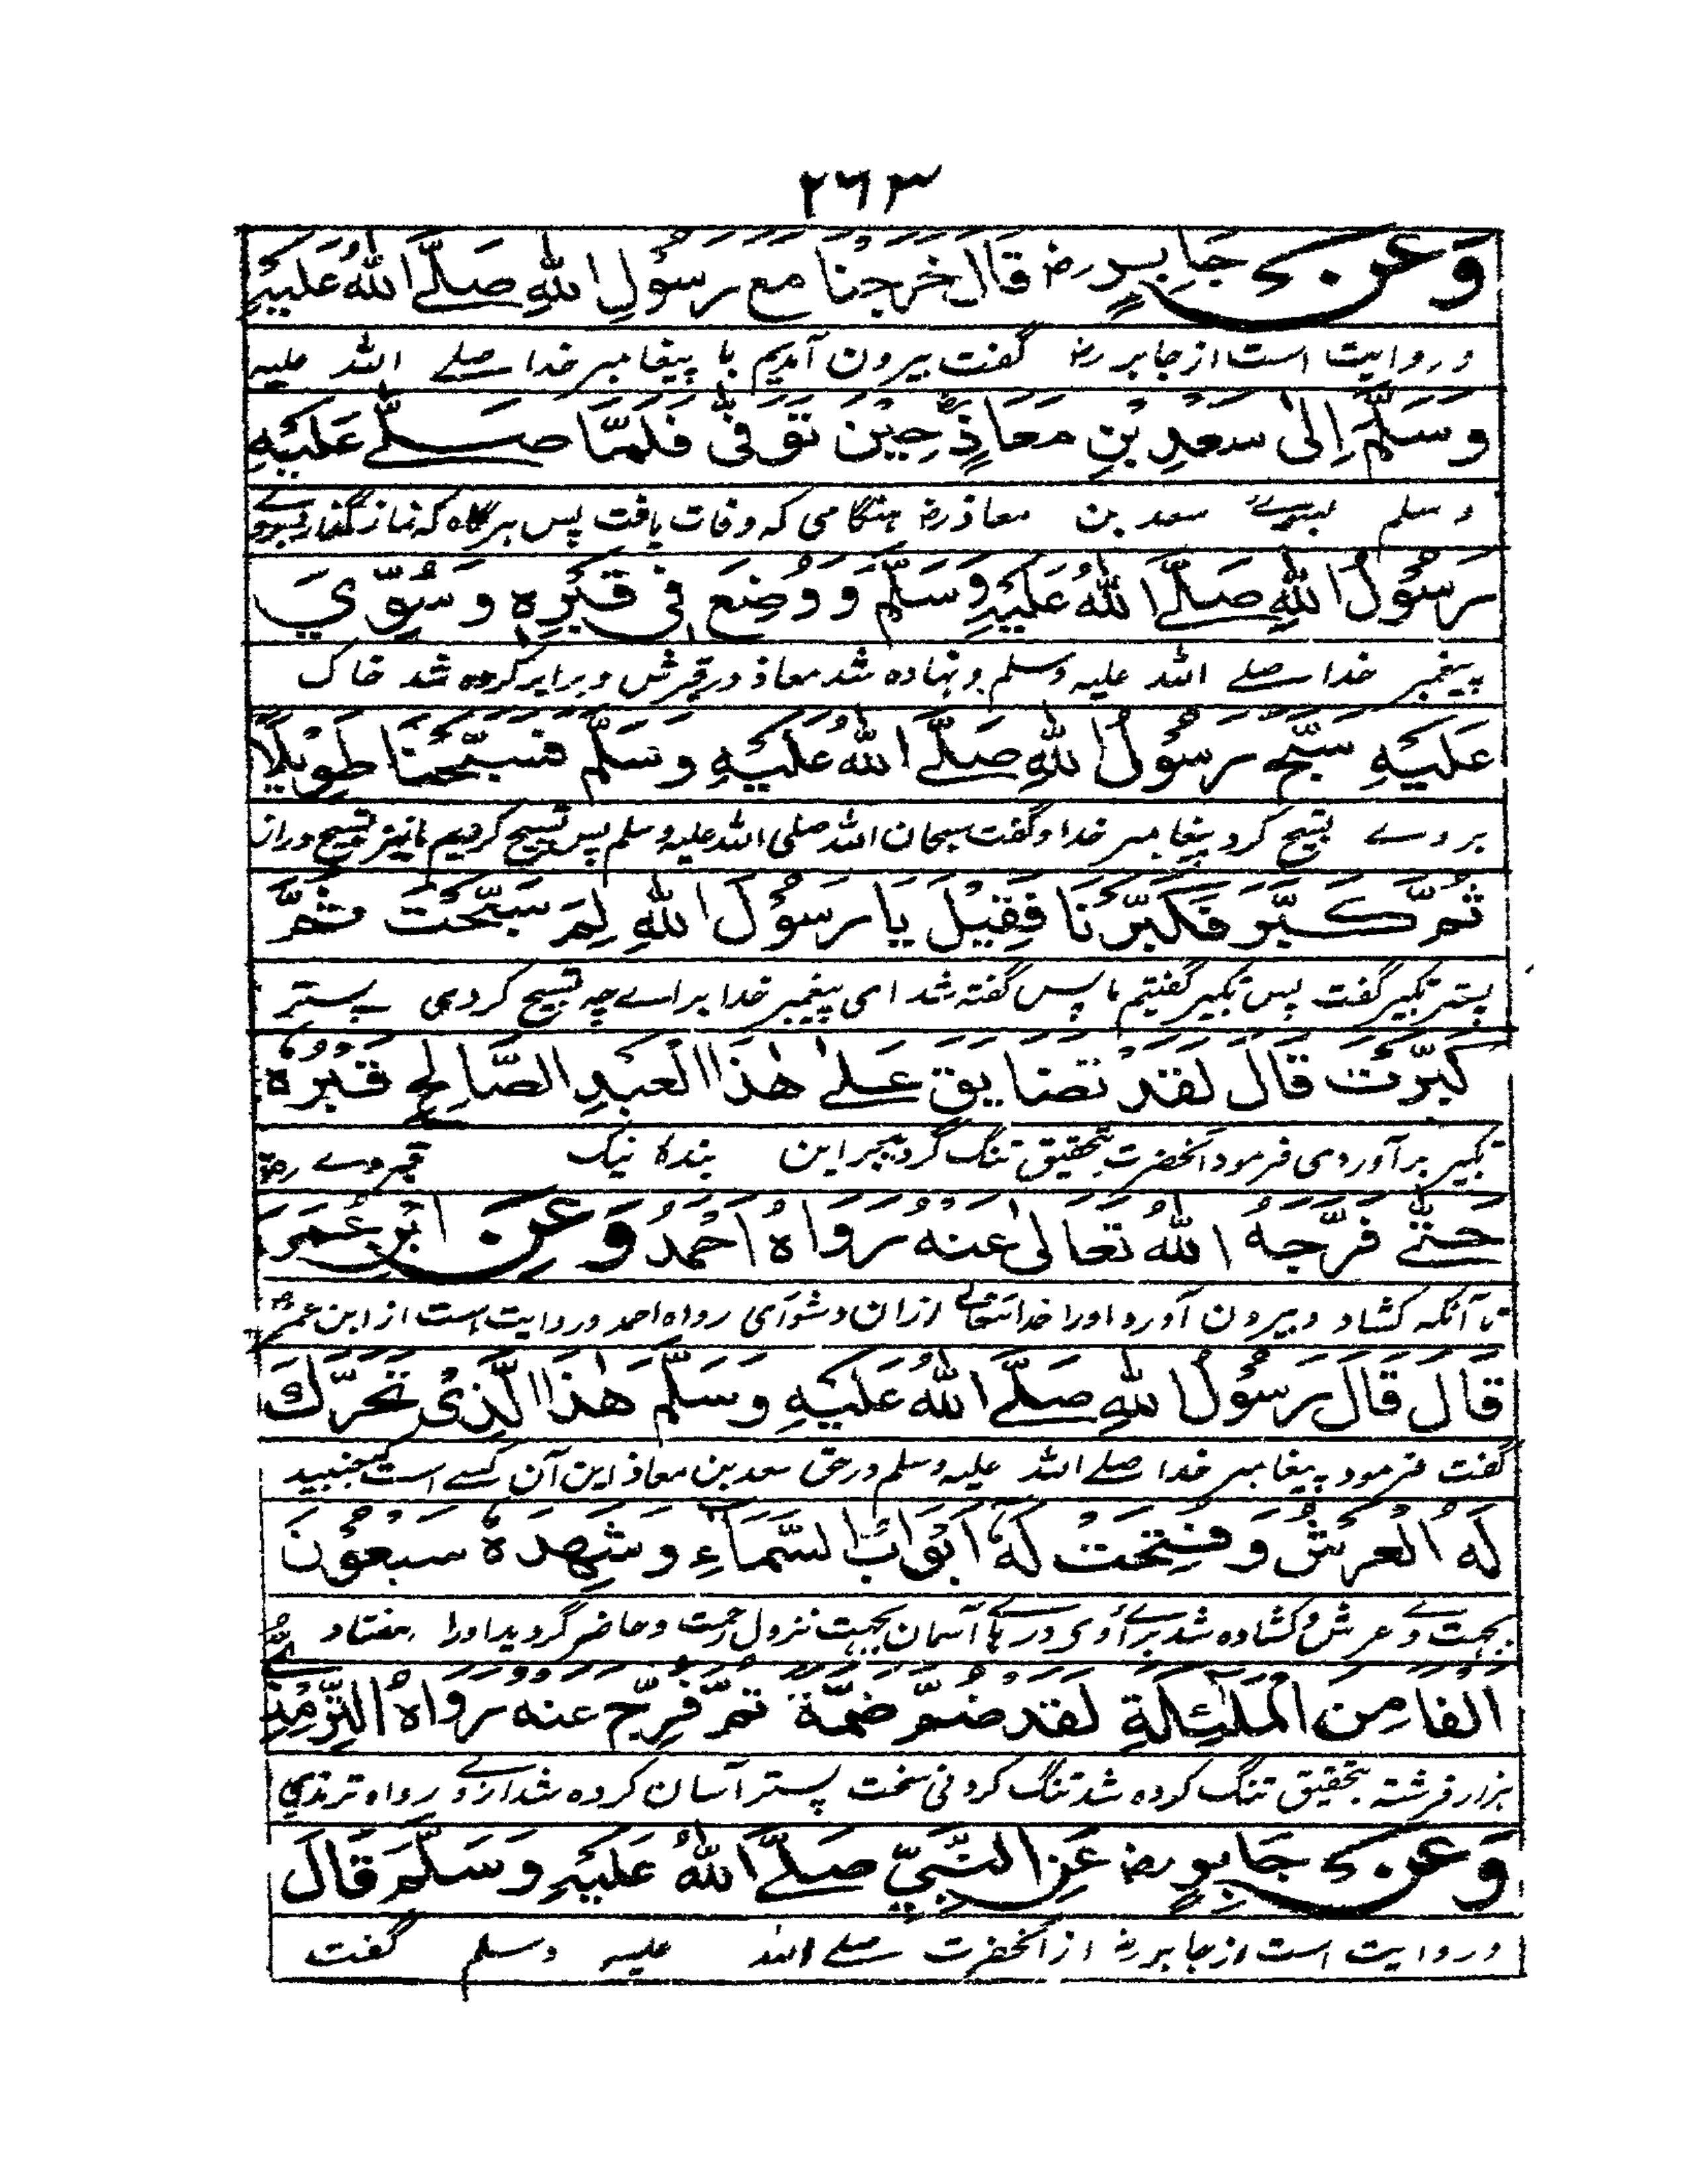 ٢٦٣
وَعَنْ جَابِرٍ رض قَالَ خَرَجْنَا مَعَ رَسُولِ اللهِ صَلَّے اللهُ عَلَيْهِ
و روایت است از جابر رض گفت بیرون آمدیم با پیغامبر خدا صلے الله علیه
وَسَلَّمَ اِلٰى سَعْدِ بْنِ مَعَاذٍ حِيْنَ تُوَفّٰى فَلَمَّا صَلَّے عَلَيْهِ
وسلم بسوے سعد بن معاذ رض هنگامی که وفات یافت پس هرگاه که نماز گذارد بروے
رَسُوْلُ اللهِ صَلَّے اللهُ عَلَيْهِ وَسَلَّمَ وَوُضِعَ فِي قَبْرِهٖ وَسُوِّيَ
پیغمبر خدا صلے الله علیه وسلم و نهاده شد معاذ در قبرش و برابر کرده شد خاک
عَلَيْهِ سَبَّحَ رَسُوْلُ اللهِ صَلَّے اللهُ عَلَيْهِ وَسَلَّمَ فَسَبَّحْنَا طَوِيْلًا
بروے تسبیح کرد پیغامبر خدا و گفت سبحان الله صلی الله علیه وسلم پس تسبیح کردیم ما نیز تسبیح دراز
ثُمَّ كَبَّرَ فَكَبَّرْنَا فَقِيْلَ يَا رَسُوْلَ اللهِ لِمَ سَبَّحْتَ ثُمَّ
پستر تکبیر گفت پس تکبیر گفتیم ما پس گفته شد ای پیغمبر خدا براے چه تسبیح کردی پستر
كَبَّرْتَ قَالَ لَقَدْ تَضَايَقَ عَلٰے هٰذَا الْعَبْدِ الصَّالِحِ قَبْرُهٗ
تکبیر برآوردی فرمود آنحضرت بتحقیق تنگ گردید بر این بنده نیک قبر وے
حَتّٰے فَرَّجَهُ اللهُ تَعَالٰى عَنْهُ رَوَاهُ اَحْمَدُ وَعَنِ ابْنِ عُمَرَ
تا آنکه کشاد و بیرون آورد او را خداتعالے ازان دشواری رواه احمد و روایت است از ابن عمر
قَالَ قَالَ رَسُوْلُ اللهِ صَلَّے اللهُ عَلَيْهِ وَسَلَّمَ هٰذَا الَّذِیْ تَحَرَّكَ
گفت فرمود پیغامبر خدا صلے الله علیه وسلم در حق سعد بن معاذ این آن کسے است که جنبید
لَهُ الْعَرْشُ وَفُتِحَتْ لَهٗ اَبْوَابُ السَّمَآءِ وَشَهِدَهٗ سَبْعُوْنَ
بجهت وے عرش و کشاده شد براے وی درہاے آسمان بجهت نزول رحمت و حاضر گردید او را هفتاد
اَلْفًا مِنَ الْمَلٰئِكَةِ لَقَدْ ضُمَّ ضَمَّةً ثُمَّ فُرِّجَ عَنْهُ رَوَاهُ التِّرْمِذِيُّ
هزار فرشته بتحقیق تنگ کرده شد تنگ کردنی سخت پستر آسان کرده شد از وے رواه ترمذی
وَعَنْ جَابِرٍ رض عَنِ النَّبِيِّ صَلَّے اللهُ عَلَيْهِ وَسَلَّمَ قَالَ
و روایت است از جابر رض از آنحضرت صلے الله علیه وسلم گفت